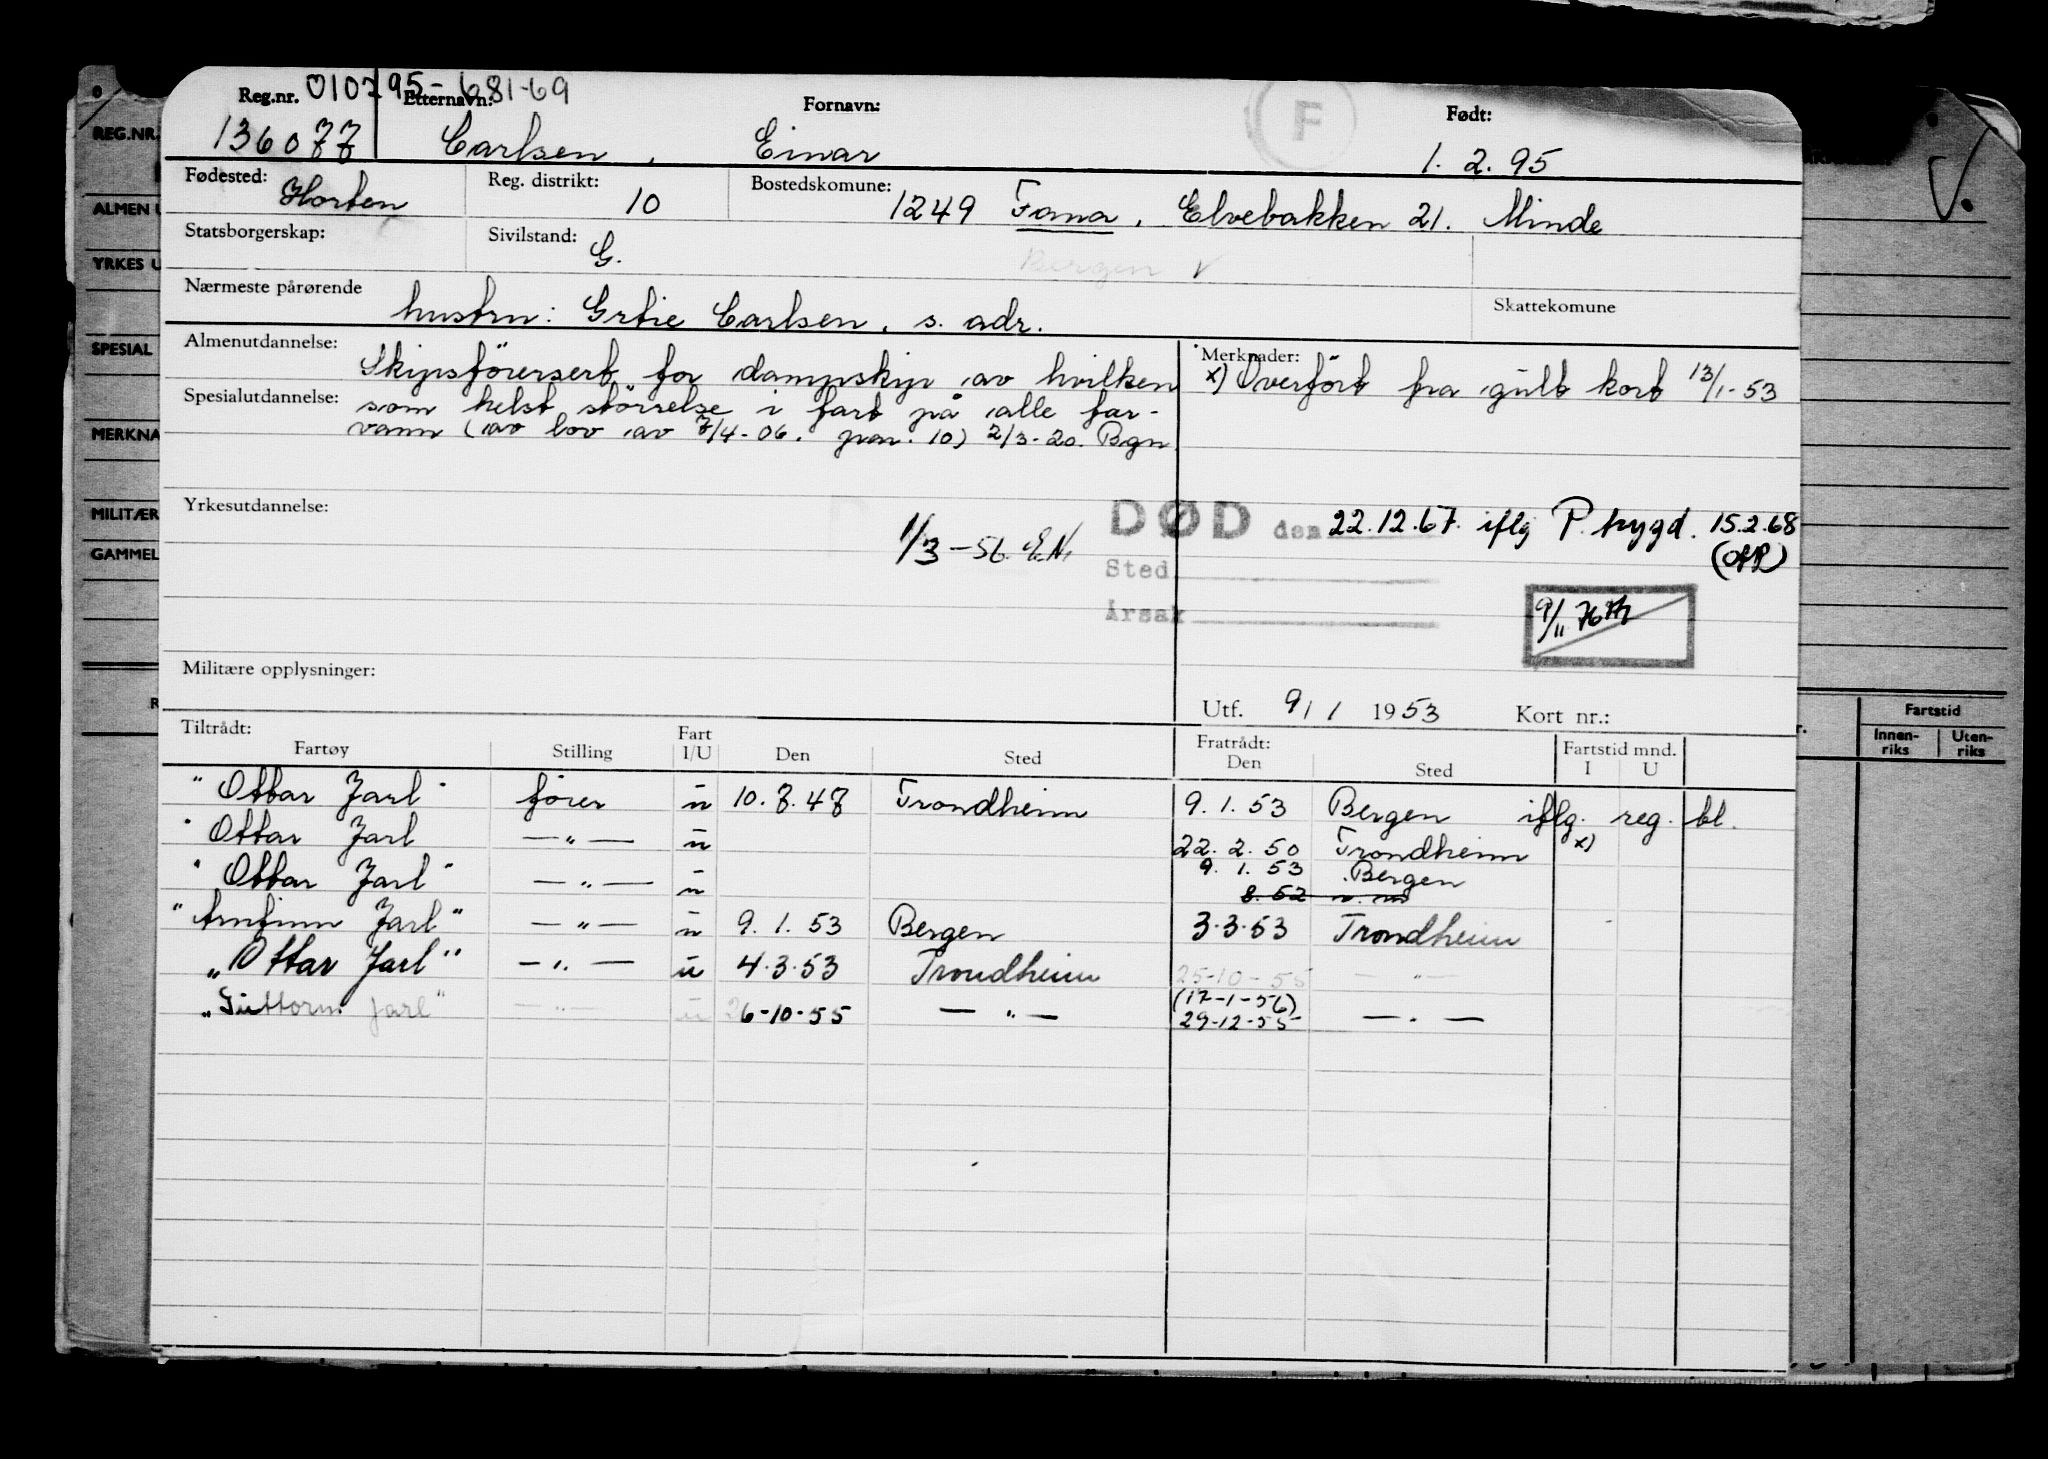 Reg.nr. 010795-68169
Etternavn: Fornavn: Født:
136077 Carlsen, Einar 1. 2. 95
Fødested: Horten Reg. distrikt: 10 Bostedskomune: 1249 Fana, Elvebakken 21. Minde
Statsborgerskap: Sivilstand: G. Bergen V
Nærmeste pårørende hustru: Grtie Carlsen, s. adr. Skattekomune
Almenutdannelse: Skipsförersert for dampskip av hvilken
Spesialutdannelse: som helst störrelse i fart på alle far-
vann (av lov av 7/4-06. par. 10) 2/3-20. Bgn.
Merknader:
x) Overfört fra gult kort 13/1-53
Yrkesutdannelse:
1/3-56 E.N.
DØD den 22.12.67. iflg P. trygd. 15.2.68
Sted
Årsak
9/11 76
Militære opplysninger:
Utf. 9/1 1953 Kort nr.:
Tiltrådt: Fart Fratrådt: Fartstid mnd.
Fartøy Stilling I/U Den Sted Den Sted I U
"Ottar Jarl" förer u 10.7.47 Trondheim 9.1.53 Bergen iflg. reg. bl.
"Ottar Jarl —"— u 22.2.50 Trondheim x)
"Ottar Jarl" —"— u 9.1.53 Bergen
8.52
"Arnfinn Jarl" —"— u 9.1.53 Bergen 3.3.53 Trondheim
"Ottar Jarl" —"— u 4.3.53 Trondheim 25-10-55 —"—
"Guttorm Jarl" —"— u 26-10-55 —"— (17-1-56)
29-12-55 —"—
REG.NR.
ALMEN U
YRKES U
SPESIAL
MERKNA
MILITÆR
GAMMEL
R
r. Fartstid
Innen-
riks Uten-
riks
F
V.